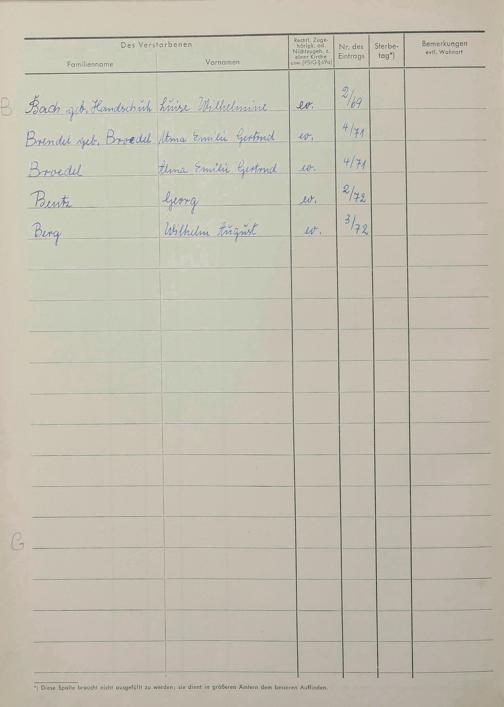 Des Verstorbenen
Familienname
Vornamen
Rechtl. Zuge-
hörigk. od.
Nichtzugeh. z.
einer Kirche
Nr. des
Eintrags
Sterbe-
tag*)
Bemerkungen
evtl. Wohnort
B
Bach geb. Handschuh Luise Wilhelmine ev. 2/69
Brendel geb. Broedel Alma Emilie Gertrud ev. 4/71
Broedel Alma Emilie Gertrud ev. 4/71
Bentz Georg ev. 2/72
Berg Wilhelm August ev. 3/72
*) Diese Spalte braucht nicht ausgefüllt zu werden; sie dient in größeren Ämtern dem besseren Auffinden.